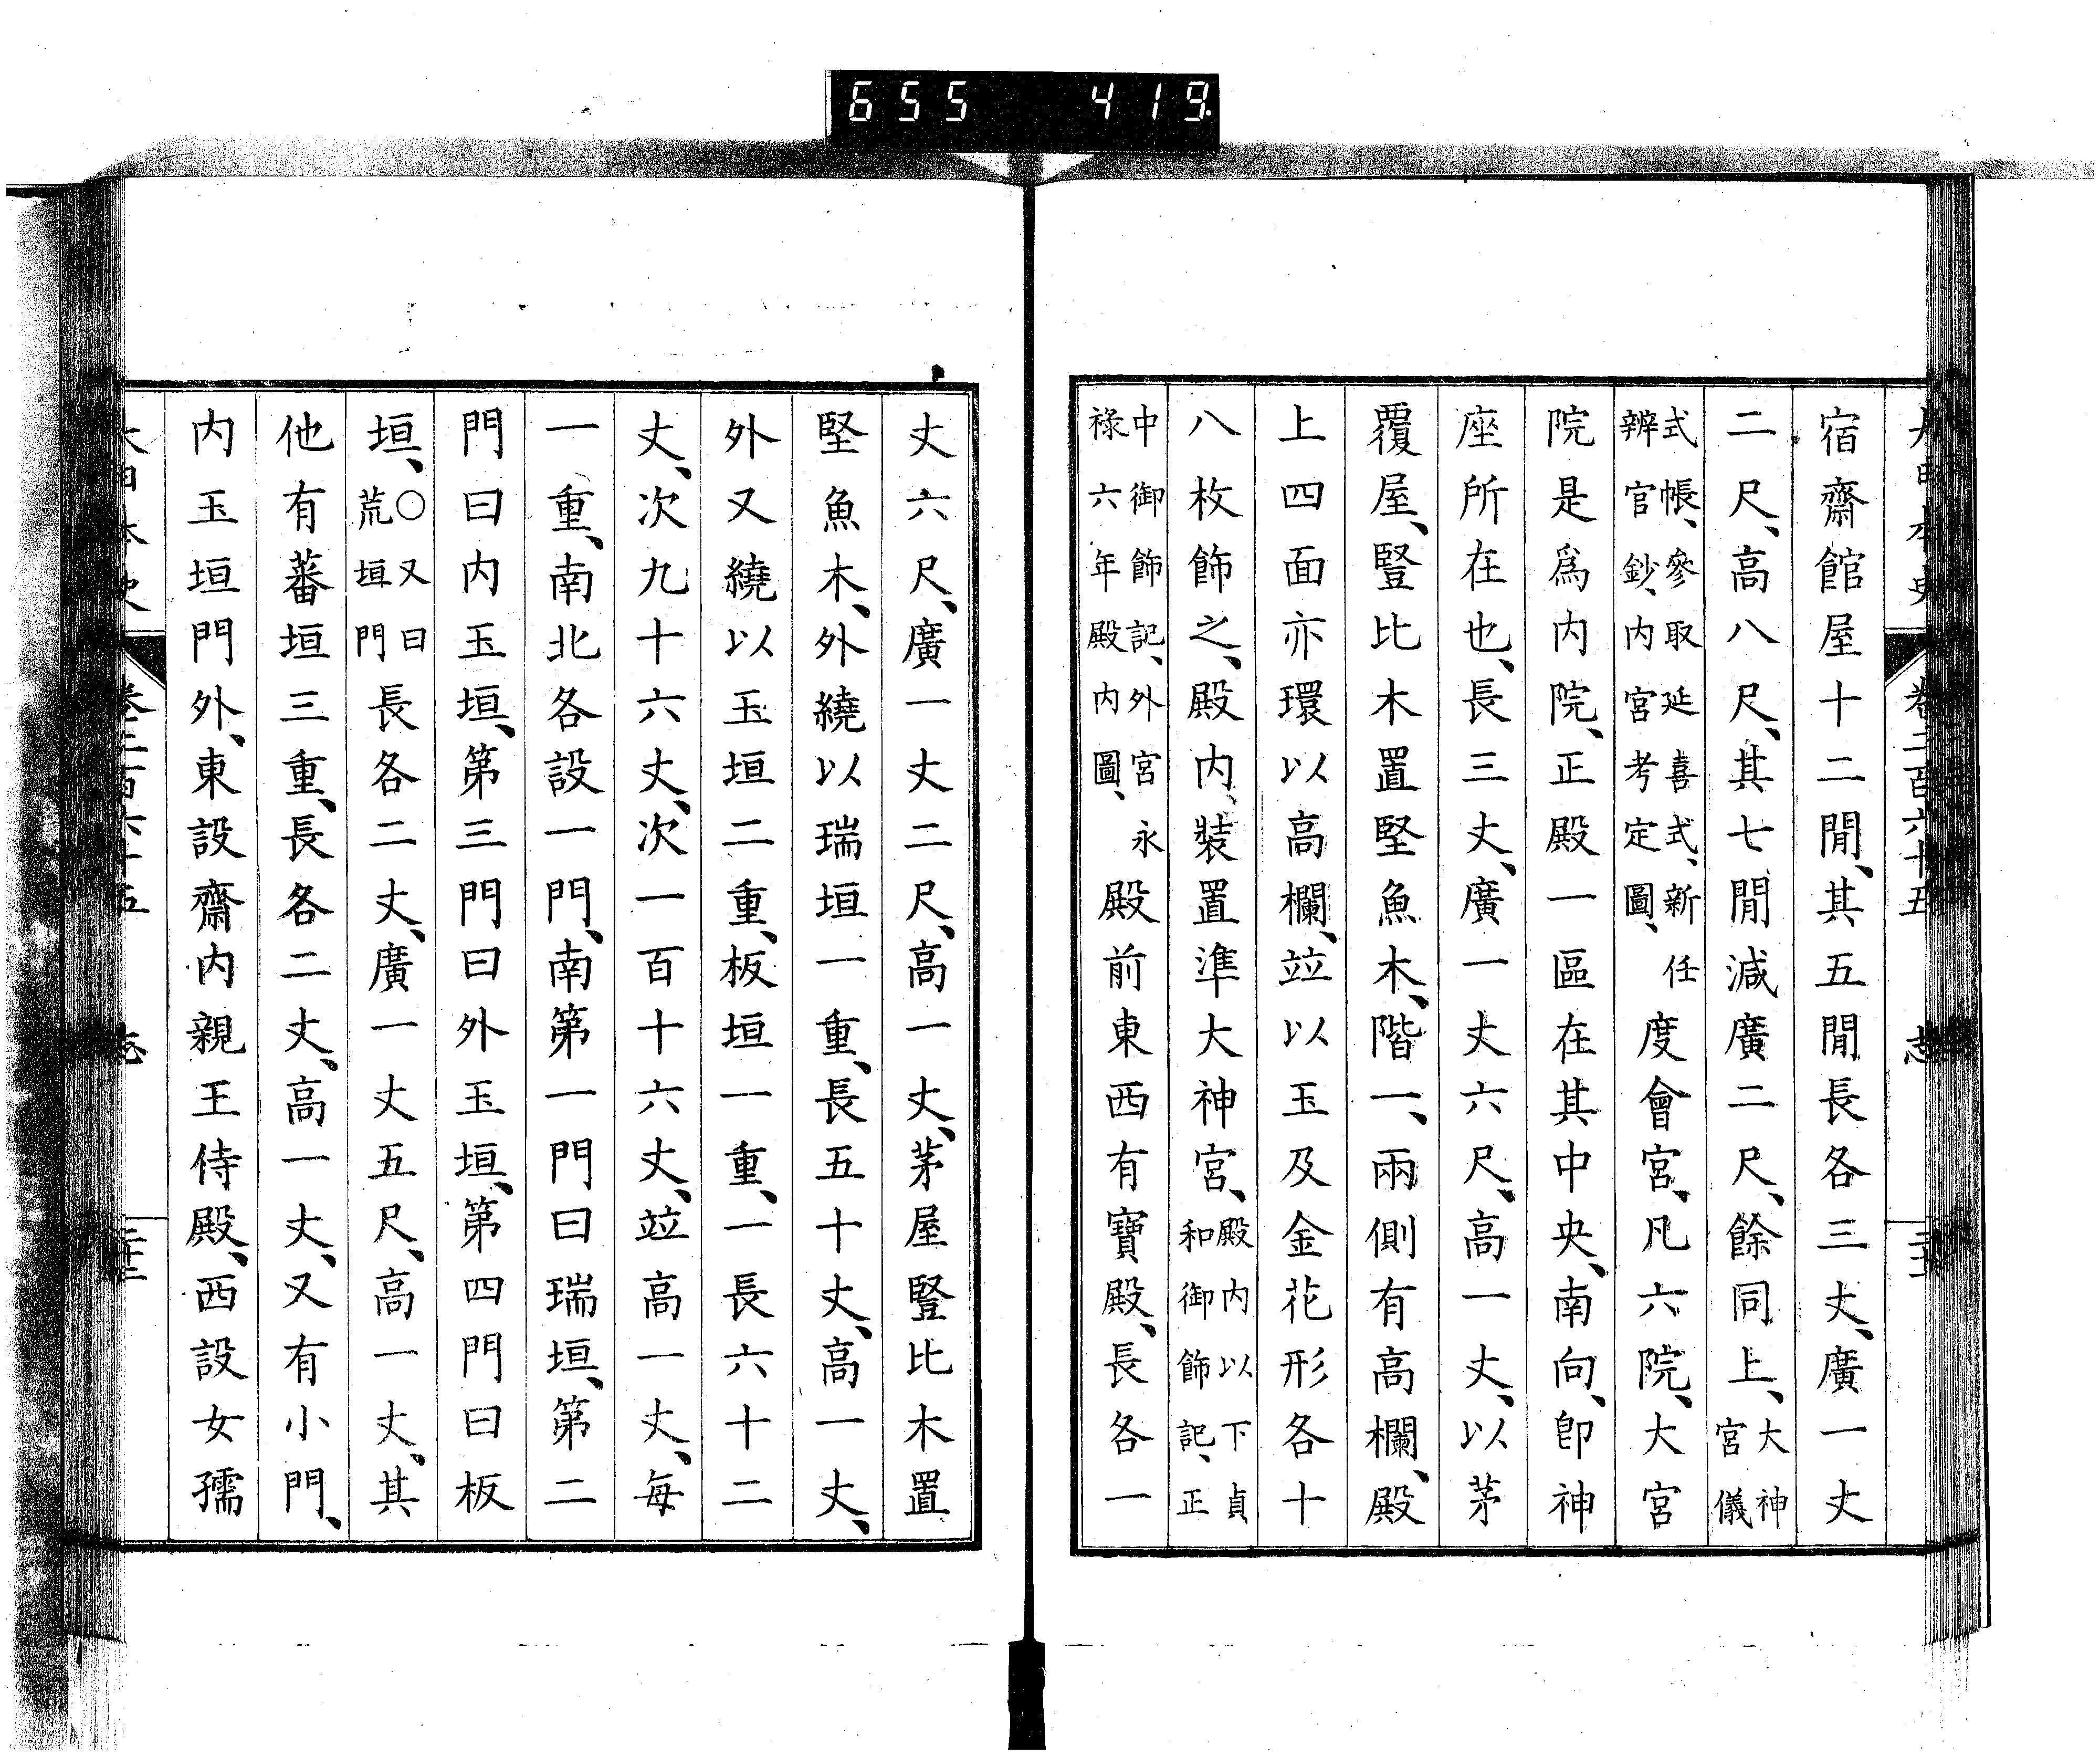 655 419
宿齋館屋十二閒、其五閒長各三丈、廣一丈
二尺、高八尺、其七閒減廣二尺、餘同上、大神宮儀
式帳、參取延喜式、新任辨官鈔、内宮考定圖、度會宮、凡六院、大宮
院是爲内院、正殿一區在其中央、南向、卽神
座所在也、長三丈、廣一丈六尺、高一丈、以茅
覆屋、豎比木置堅魚木、階一、兩側有高欄、殿
上四面亦環以高欄、竝以玉及金花形各十
八枚飾之、殿内裝置準大神宮、殿内以下貞和御飾記、正
中御飾記、外宮永祿六年殿内圖、殿前東西有寶殿、長各一
丈六尺、廣一丈二尺、高一丈、茅屋豎比木置
堅魚木、外繞以瑞垣一重、長五十丈、高一丈、
外又繞以玉垣二重、板垣一重、一長六十二
丈、次九十六丈、次一百十六丈、竝高一丈、每
一重、南北各設一門、南第一門曰瑞垣、第二
門曰内玉垣、第三門曰外玉垣、第四門曰板
垣、○又曰荒垣門長各二丈、廣一丈五尺、高一丈、其
他有蕃垣三重、長各二丈、高一丈、又有小門、
内玉垣門外、東設齋内親王侍殿、西設女孺